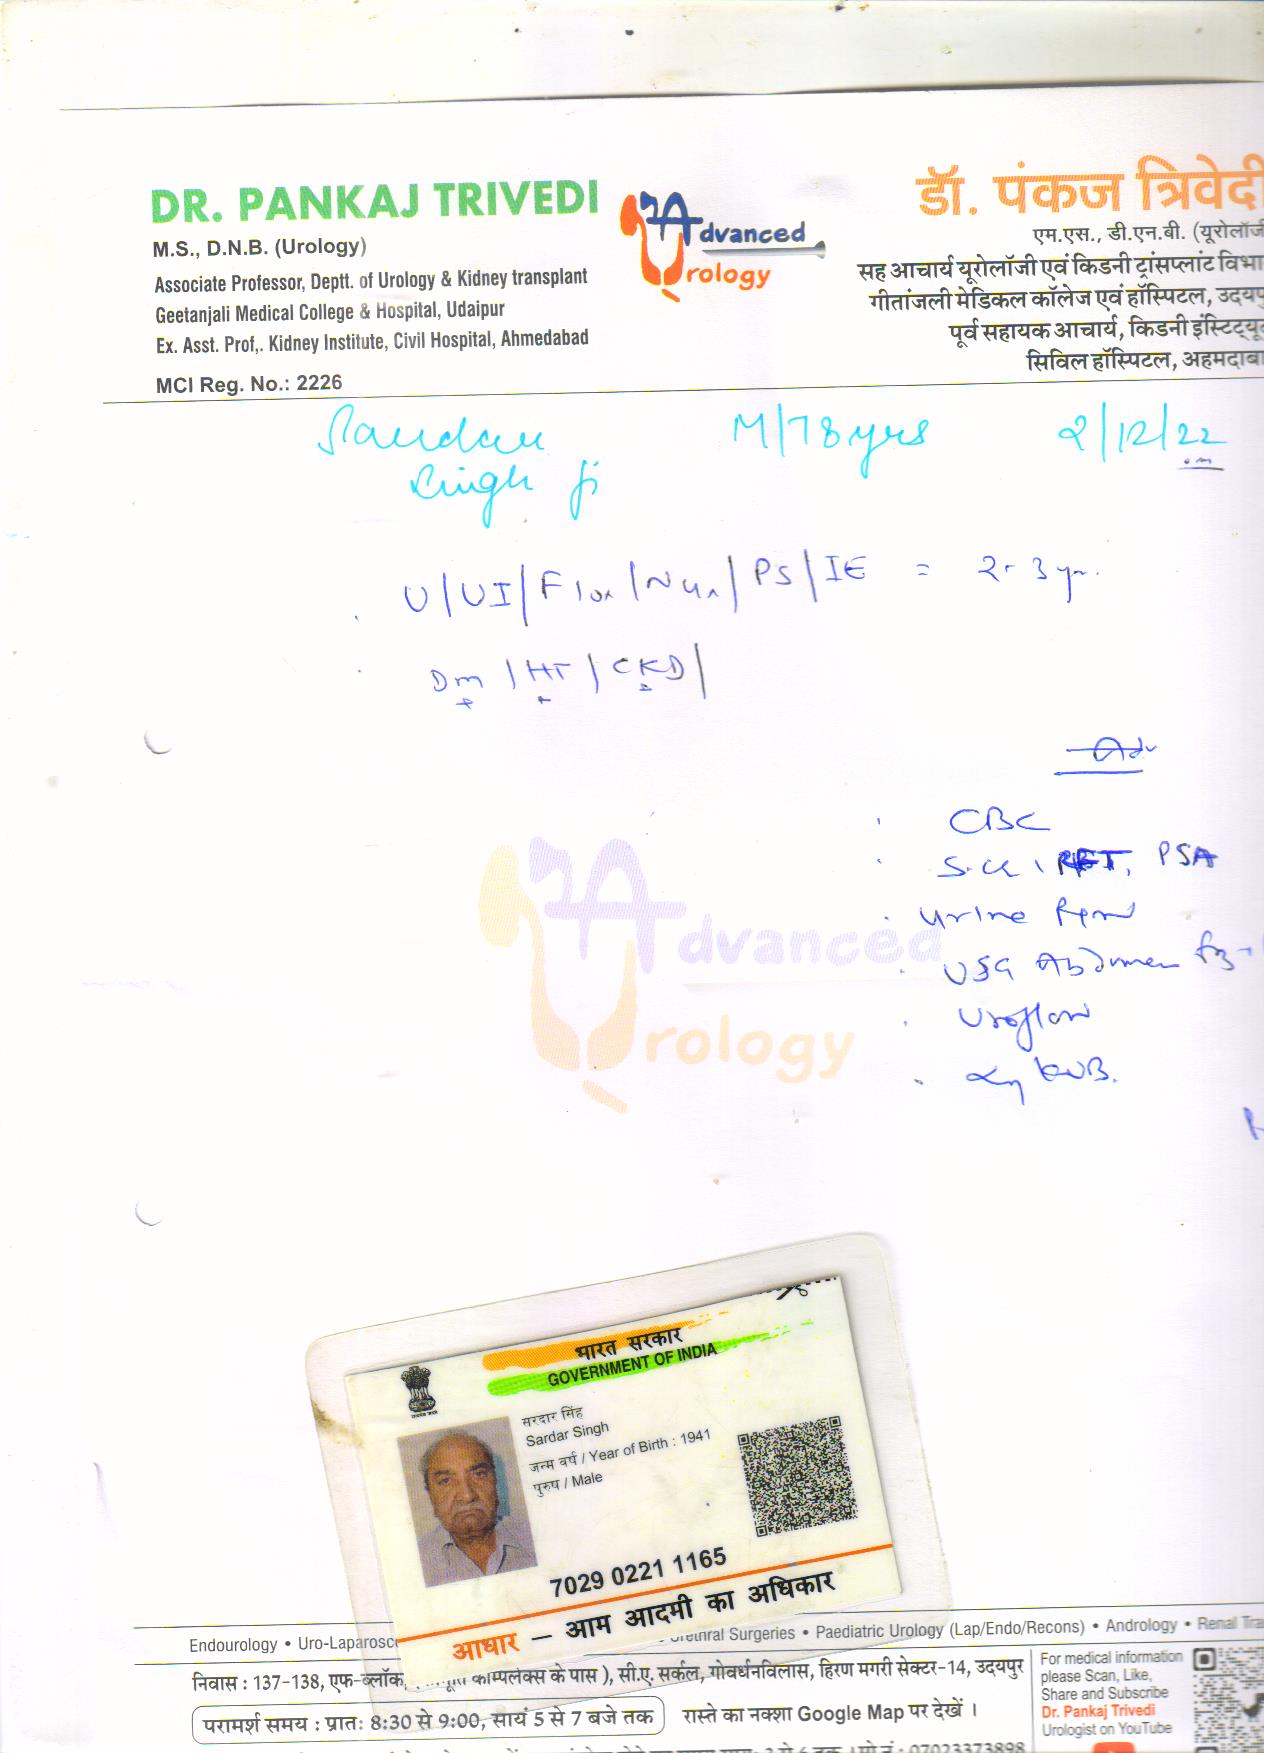 DR. PANKAJ TRIVEDI
M.S., D.N.B. (Urology)
Associate Professor, Deptt. of Urology & Kidney transplant
Geetanjali Medical College & Hospital, Udaipur
Ex. Asst. Prof,. Kidney Institute, Civil Hospital, Ahmedabad
MCI Reg. No.: 2226
Advanced
Urology
डॉ. पंकज त्रिवेदी
एम.एस., डी.एन.बी. (यूरोलॉजी
सह आचार्य यूरोलॉजी एवं किडनी ट्रांसप्लांट विभा
गीतांजली मेडिकल कॉलेज एवं हॉस्पिटल, उदयपु
पूर्व सहायक आचार्य, किडनी इंस्टिट्यू
सिविल हॉस्पिटल, अहमदाबा
M/78 yrs 2/12/22
Singh ji
U/UI/F / /PS/IE = 2-3 yr.
DM/HT/CKD/
Adv
CBC
S.Cr, RFT, PSA
Urine
USG Abdomen
Uroflow
KUB.
Advanced
Urology
भारत सरकार
GOVERNMENT OF INDIA
सरदार सिंह
Sardar Singh
जन्म वर्ष / Year of Birth : 1941
पुरुष / Male
7029 0221 1165
आधार – आम आदमी का अधिकार
Endourology • Uro-Laparosc
Urethral Surgeries • Paediatric Urology (Lap/Endo/Recons) • Andrology • Renal Tra
निवास : 137-138, एफ-ब्लॉक, काम्पलेक्स के पास ), सी.ए. सर्कल, गोवर्धनविलास, हिरण मगरी सेक्टर-14, उदयपुर
परामर्श समय : प्रातः 8:30 से 9:00, सायं 5 से 7 बजे तक
रास्ते का नक्शा Google Map पर देखें ।
For medical information
please Scan, Like,
Share and Subscribe
Dr. Pankaj Trivedi
Urologist on YouTube
07023373898